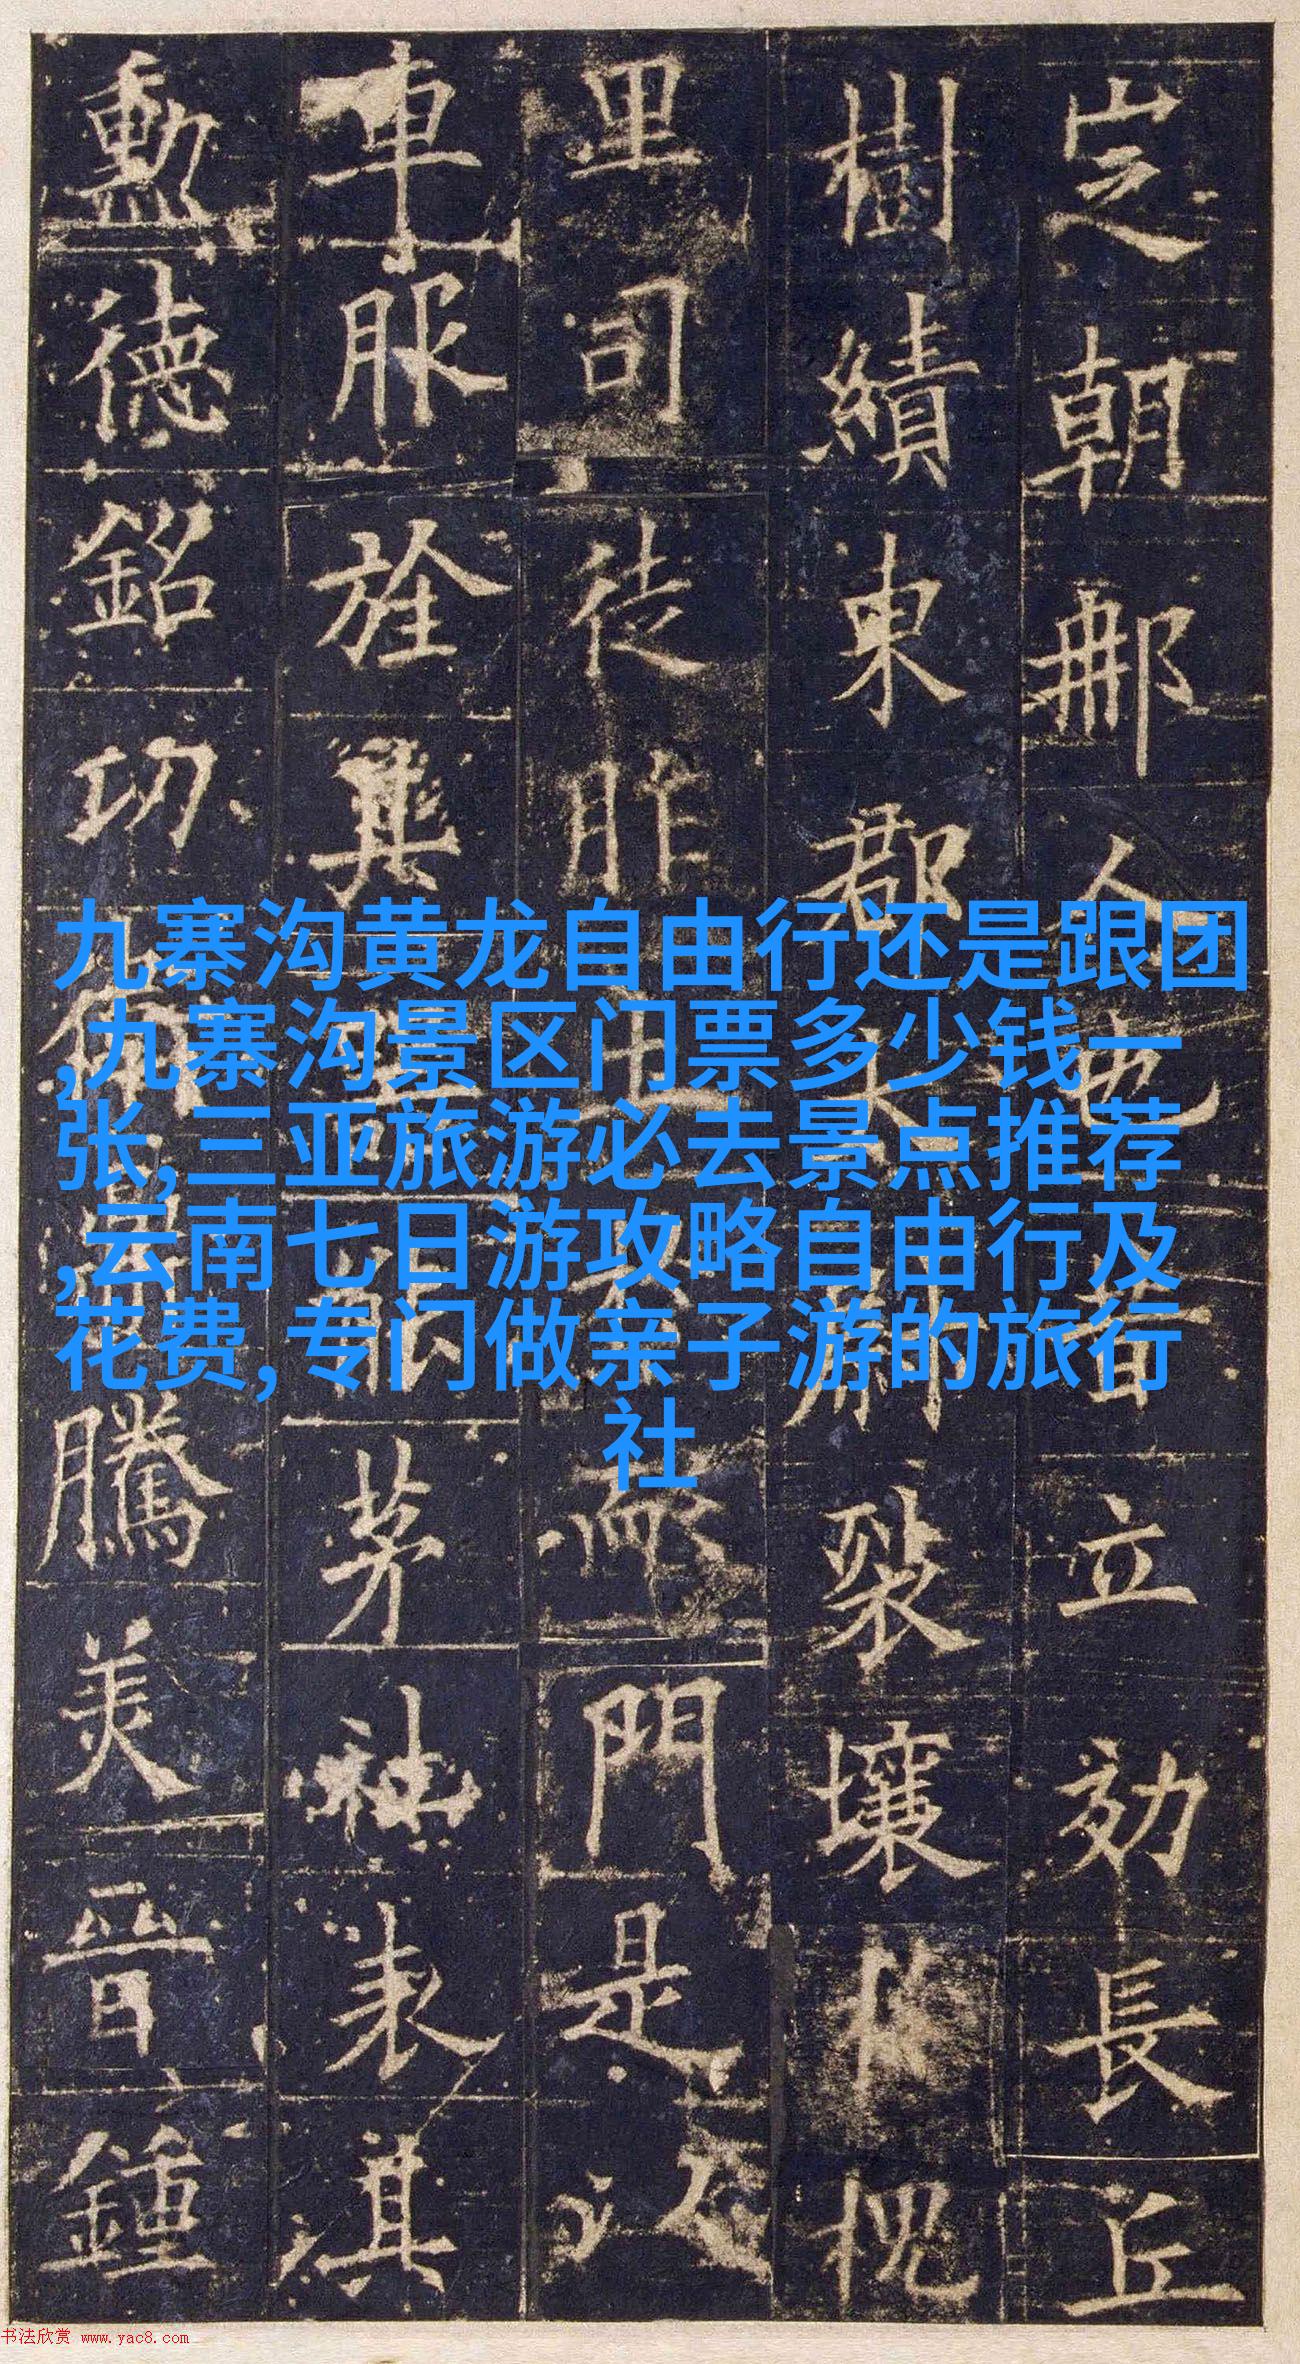 定朝那人也昔立効長丘
樹績東郡太尉裂壤於槐
里司徒胙土於門是以
車服旌其器能茅社表其
勳德銘功衛鼎騰美晉鍾
九寨沟黄龙自由行还是跟团
,九寨沟景区门票多少钱一
张,三亚旅游必去景点推荐
,云南七日游攻略自由行及
花费,专门做亲子游的旅行
社
书法欣赏 www.yac8.com